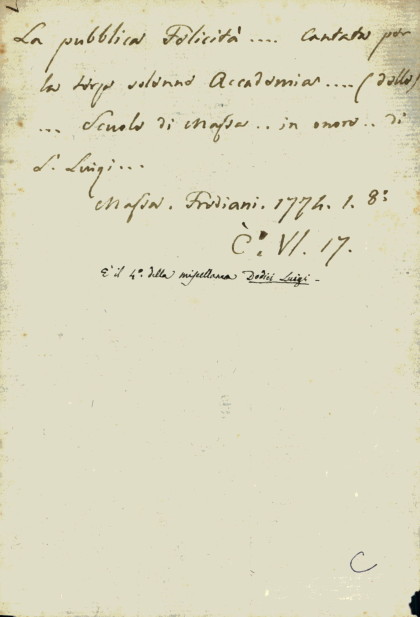 La pubblica Felicità .... Cantata per
la terza solenne Accademia .... (delle)
... Scuole di Massa .. in onore .. di
S. Luigi ...
Massa. Frediani. 1774. 1. 8º
C. VI. 17.
È il 4º. della miscellanea Dodici Luigi -
C